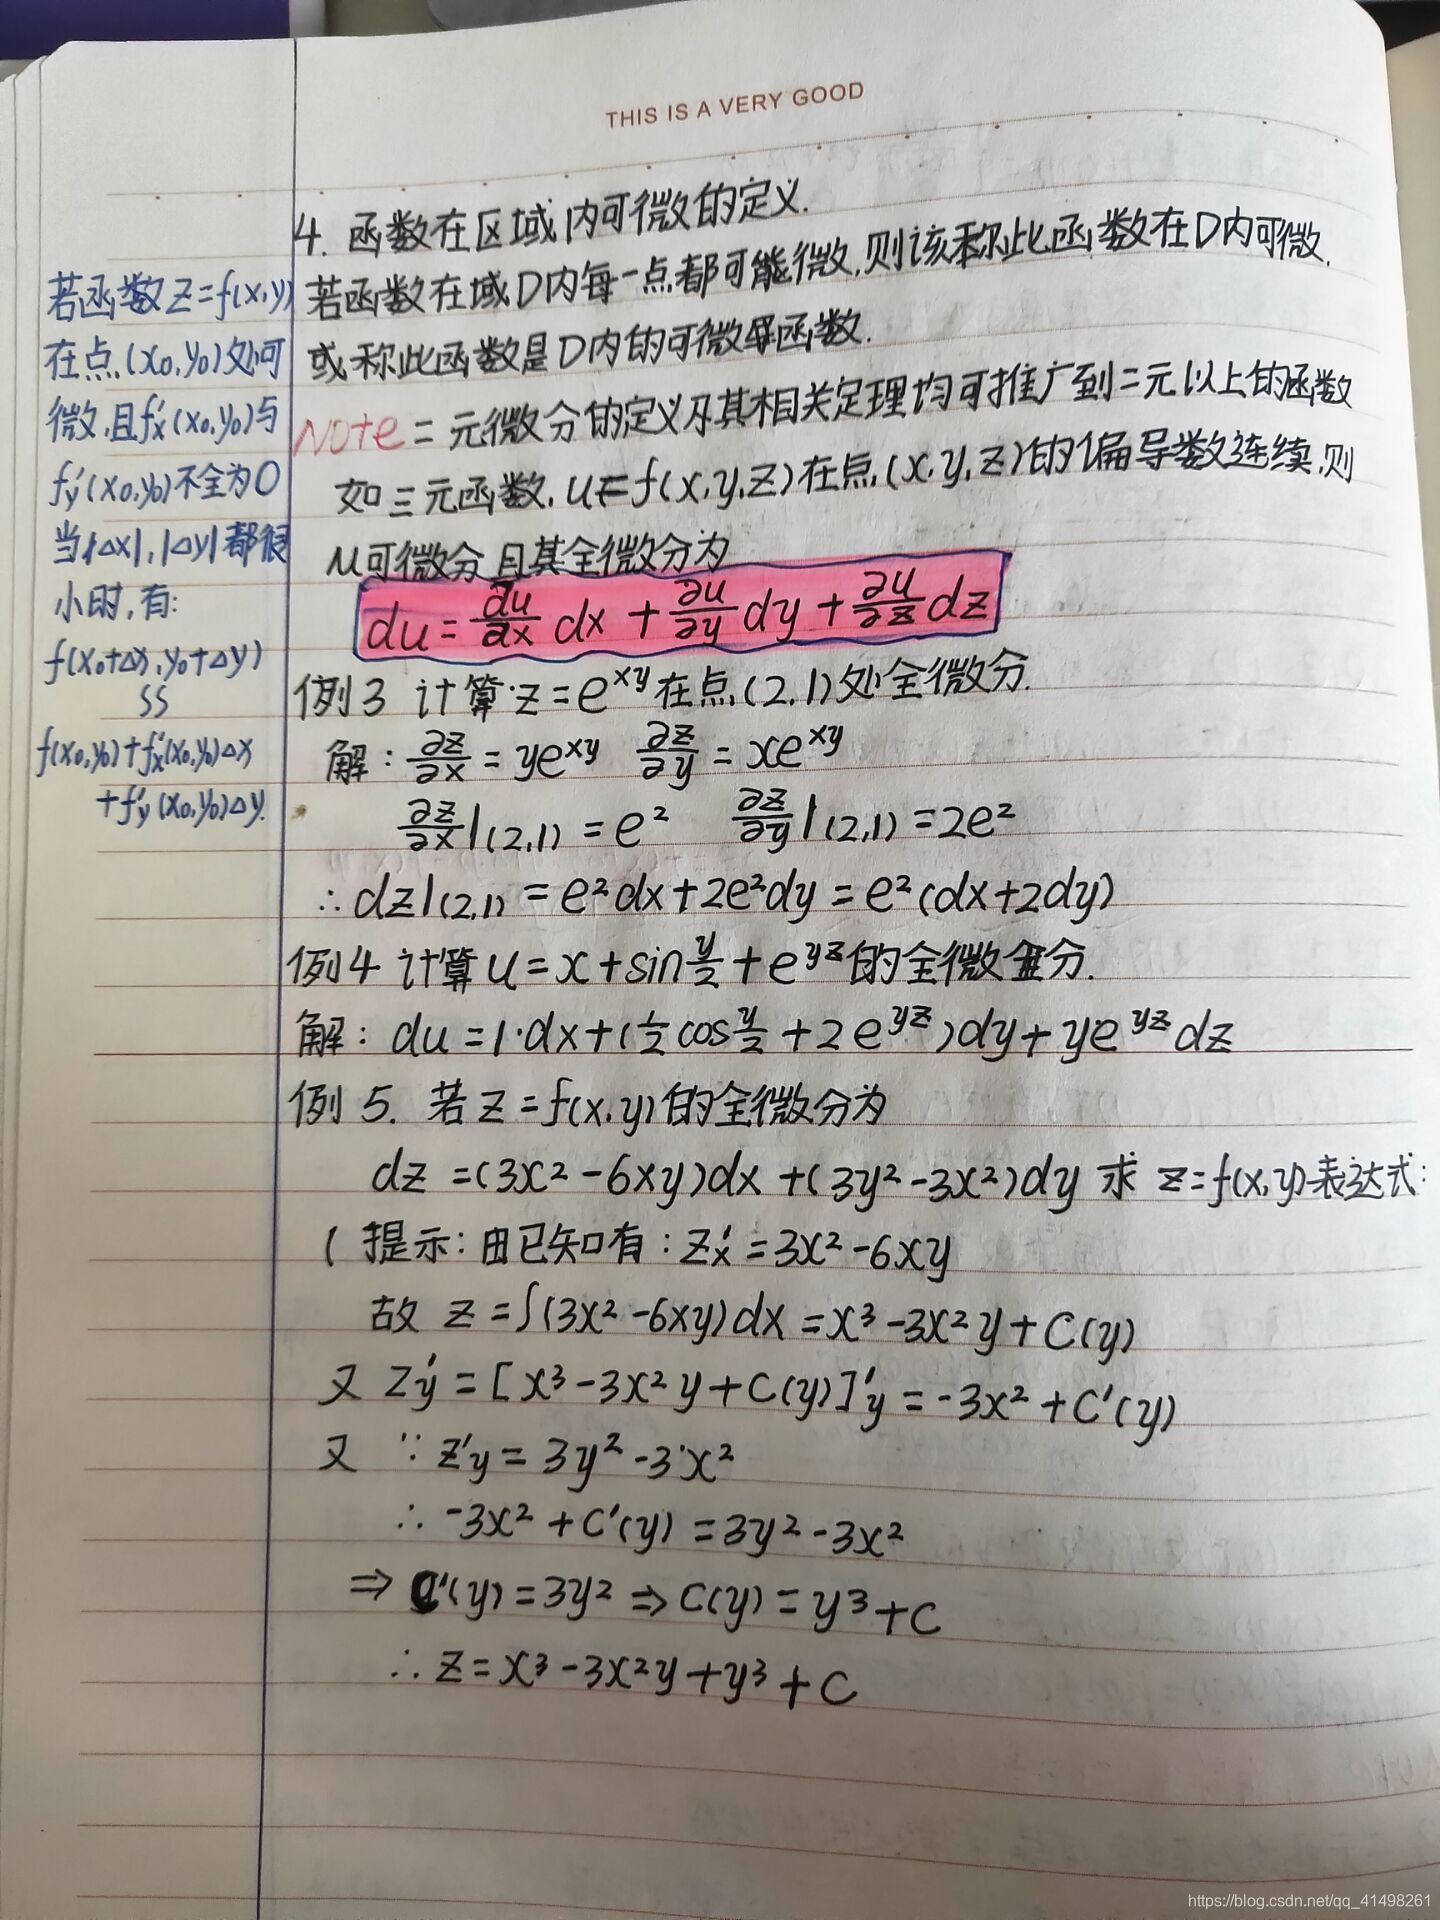 THIS IS A VERY GOOD
4. 函数在区域内可微的定义.
若函数在域D内每一点都可能微,则该称此函数在D内可微,
或称此函数是D内的可微函数.
Note 二元微分的定义及其相关定理均可推广到二元以上的函数
如三元函数. u=f(x,y,z)在点(x,y,z)的偏导数连续,则
u可微分 且其全微分为
du = ∂u/∂x dx + ∂u/∂y dy + ∂u/∂z dz
例3 计算 z=e^xy 在点(2,1)处全微分.
解: ∂z/∂x = ye^xy ∂z/∂y = xe^xy
∂z/∂x|(2,1) = e² ∂z/∂y|(2,1) = 2e²
∴ dz|(2,1) = e²dx+2e²dy = e²(dx+2dy)
例4 计算 u=x+sin y/2 + e^yz 的全微分.
解: du=1·dx+(1/2 cos y/2 + 2e^yz)dy+ye^yz dz
例5. 若z=f(x,y)的全微分为
dz =(3x²-6xy)dx+(3y²-3x²)dy 求 z=f(x,y)表达式:
( 提示: 由已知有: z'x=3x²-6xy
故 z=∫(3x²-6xy)dx=x³-3x²y+C(y)
又 z'y=[x³-3x²y+C(y)]'y=-3x²+C'(y)
又 ∵ z'y=3y²-3x²
∴ -3x²+C'(y)=3y²-3x²
⇒ C'(y)=3y² ⇒ C(y)=y³+C
∴ z=x³-3x²y+y³+C
若函数z=f(x,y)
在点(x₀,y₀)处可
微,且f'x(x₀,y₀)与
f'y(x₀,y₀)不全为0
当|△x|,|△y|都很
小时,有:
f(x₀+△x,y₀+△y)
≈
f(x₀,y₀)+f'x(x₀,y₀)△x
+f'y(x₀,y₀)△y.
https://blog.csdn.net/qq_41498261